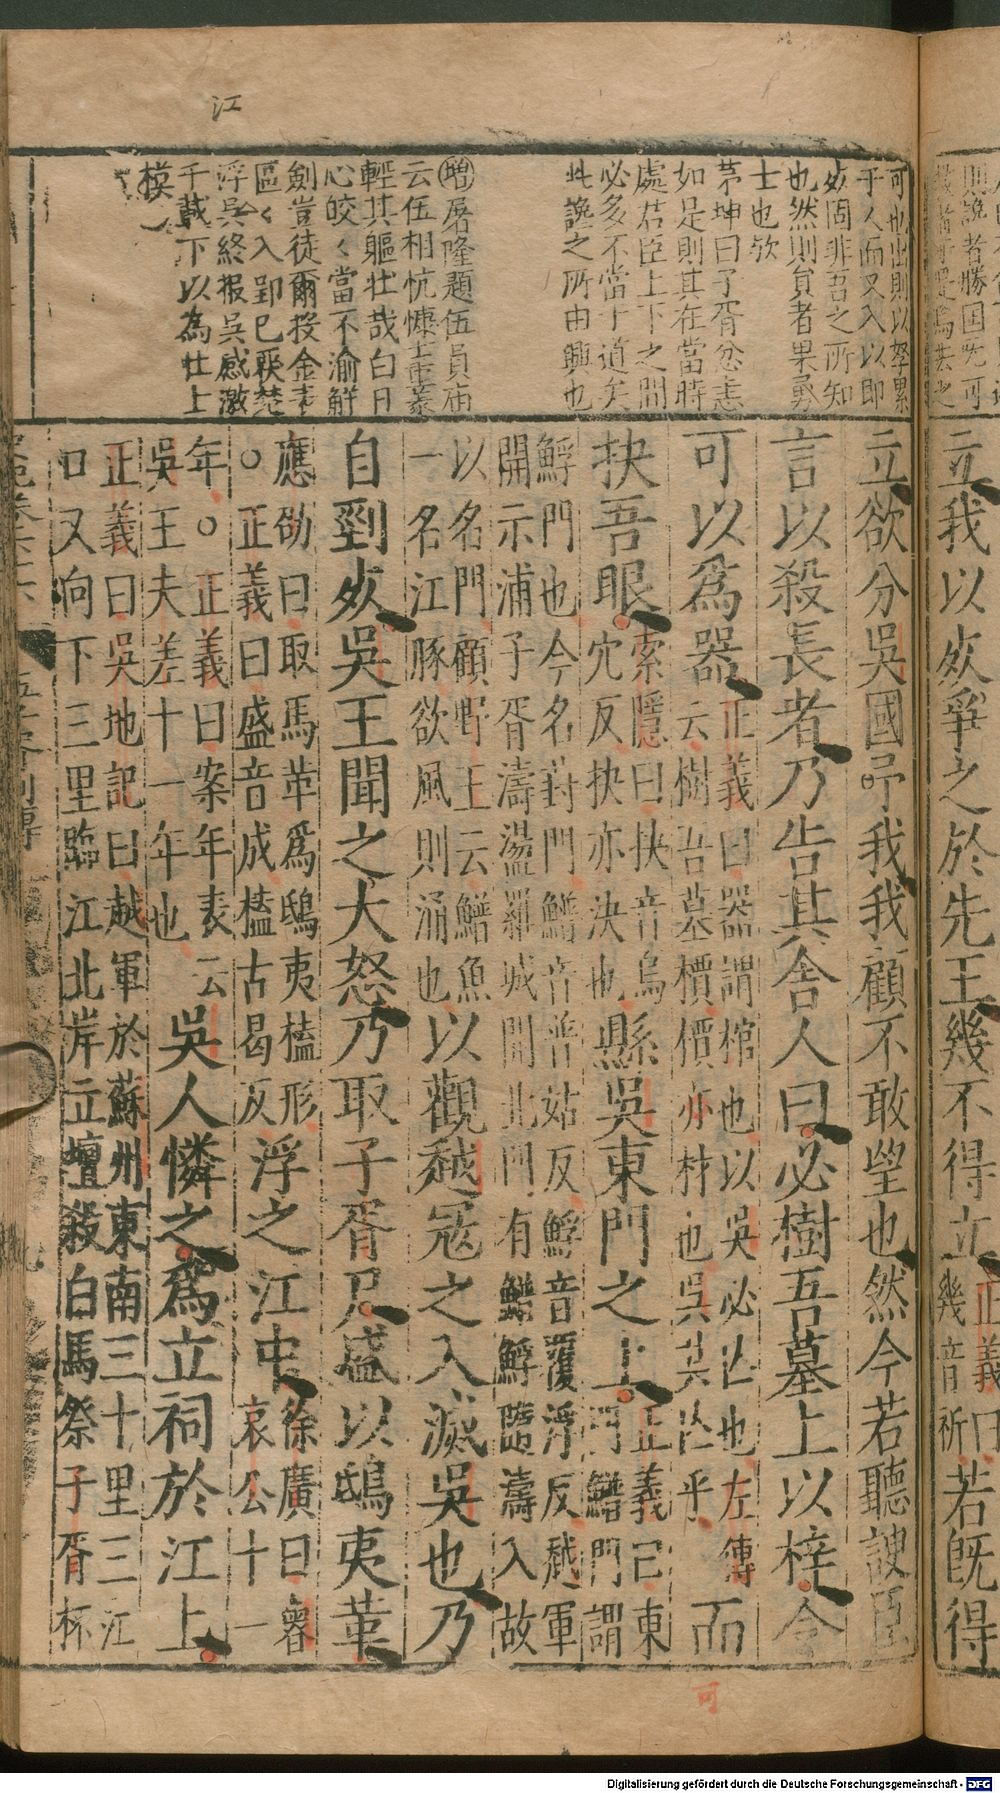 江
可也出則以孥累
于人而又入以即
死固非吾之所知
也然則員者果勇
士也欤
茅坤曰子胥忿恚
如是則其在當時
處君臣上下之間
必多不當于道矣
此讒之所由興也
增屠隆題伍員庙
云伍相忼慷士重義
輕其軀壮哉白日
心皎〻當不渝鮮
劍豈徒爾投金
區〻入郢已厭楚
浮吳終报吳感激
千載下以為壮士
模
立我以死爭之於先王幾不得立正義曰
幾音祈若旣得
立欲分吳國予我我顧不敢望也然今若聽諛臣
言以殺長者乃告其舍人曰必樹吾墓上以梓令
可以爲器正義曰器謂棺也以吳必亡也左傳
云樹吾墓檟檟亦材也吳其亡乎而
抉吾眼索隱曰抉音烏
穴反抉亦決也縣吳東門之上正義曰東
門鱛門謂
鯙門也今名葑門鱛音普姑反鯙音覆浮反越軍
開示浦子胥濤盪羅城開北門有鱛鯙隨濤入故
以名門顧野王云鱛魚
一名江豚欲風則涌也以觀越寇之入滅吳也乃
自剄死吳王聞之大怒乃取子胥尸盛以鴟夷革
應劭曰取馬革爲鴟夷榼形
○正義曰盛音成榼古曷反浮之江中徐廣曰魯
哀公十一
年○正義曰案年表云
吳王夫差十一年也吳人憐之爲立祠於江上
正義曰吳地記曰越軍於蘇州東南三十里三江
口又向下三里臨江北岸立壇殺白馬祭子胥杯
可
Digitalisierung gefördert durch die Deutsche Forschungsgemeinschaft - DFG